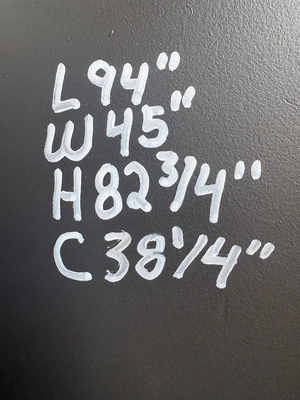 L 94"
W 45"
H 82 3/4"
C 38 1/4"